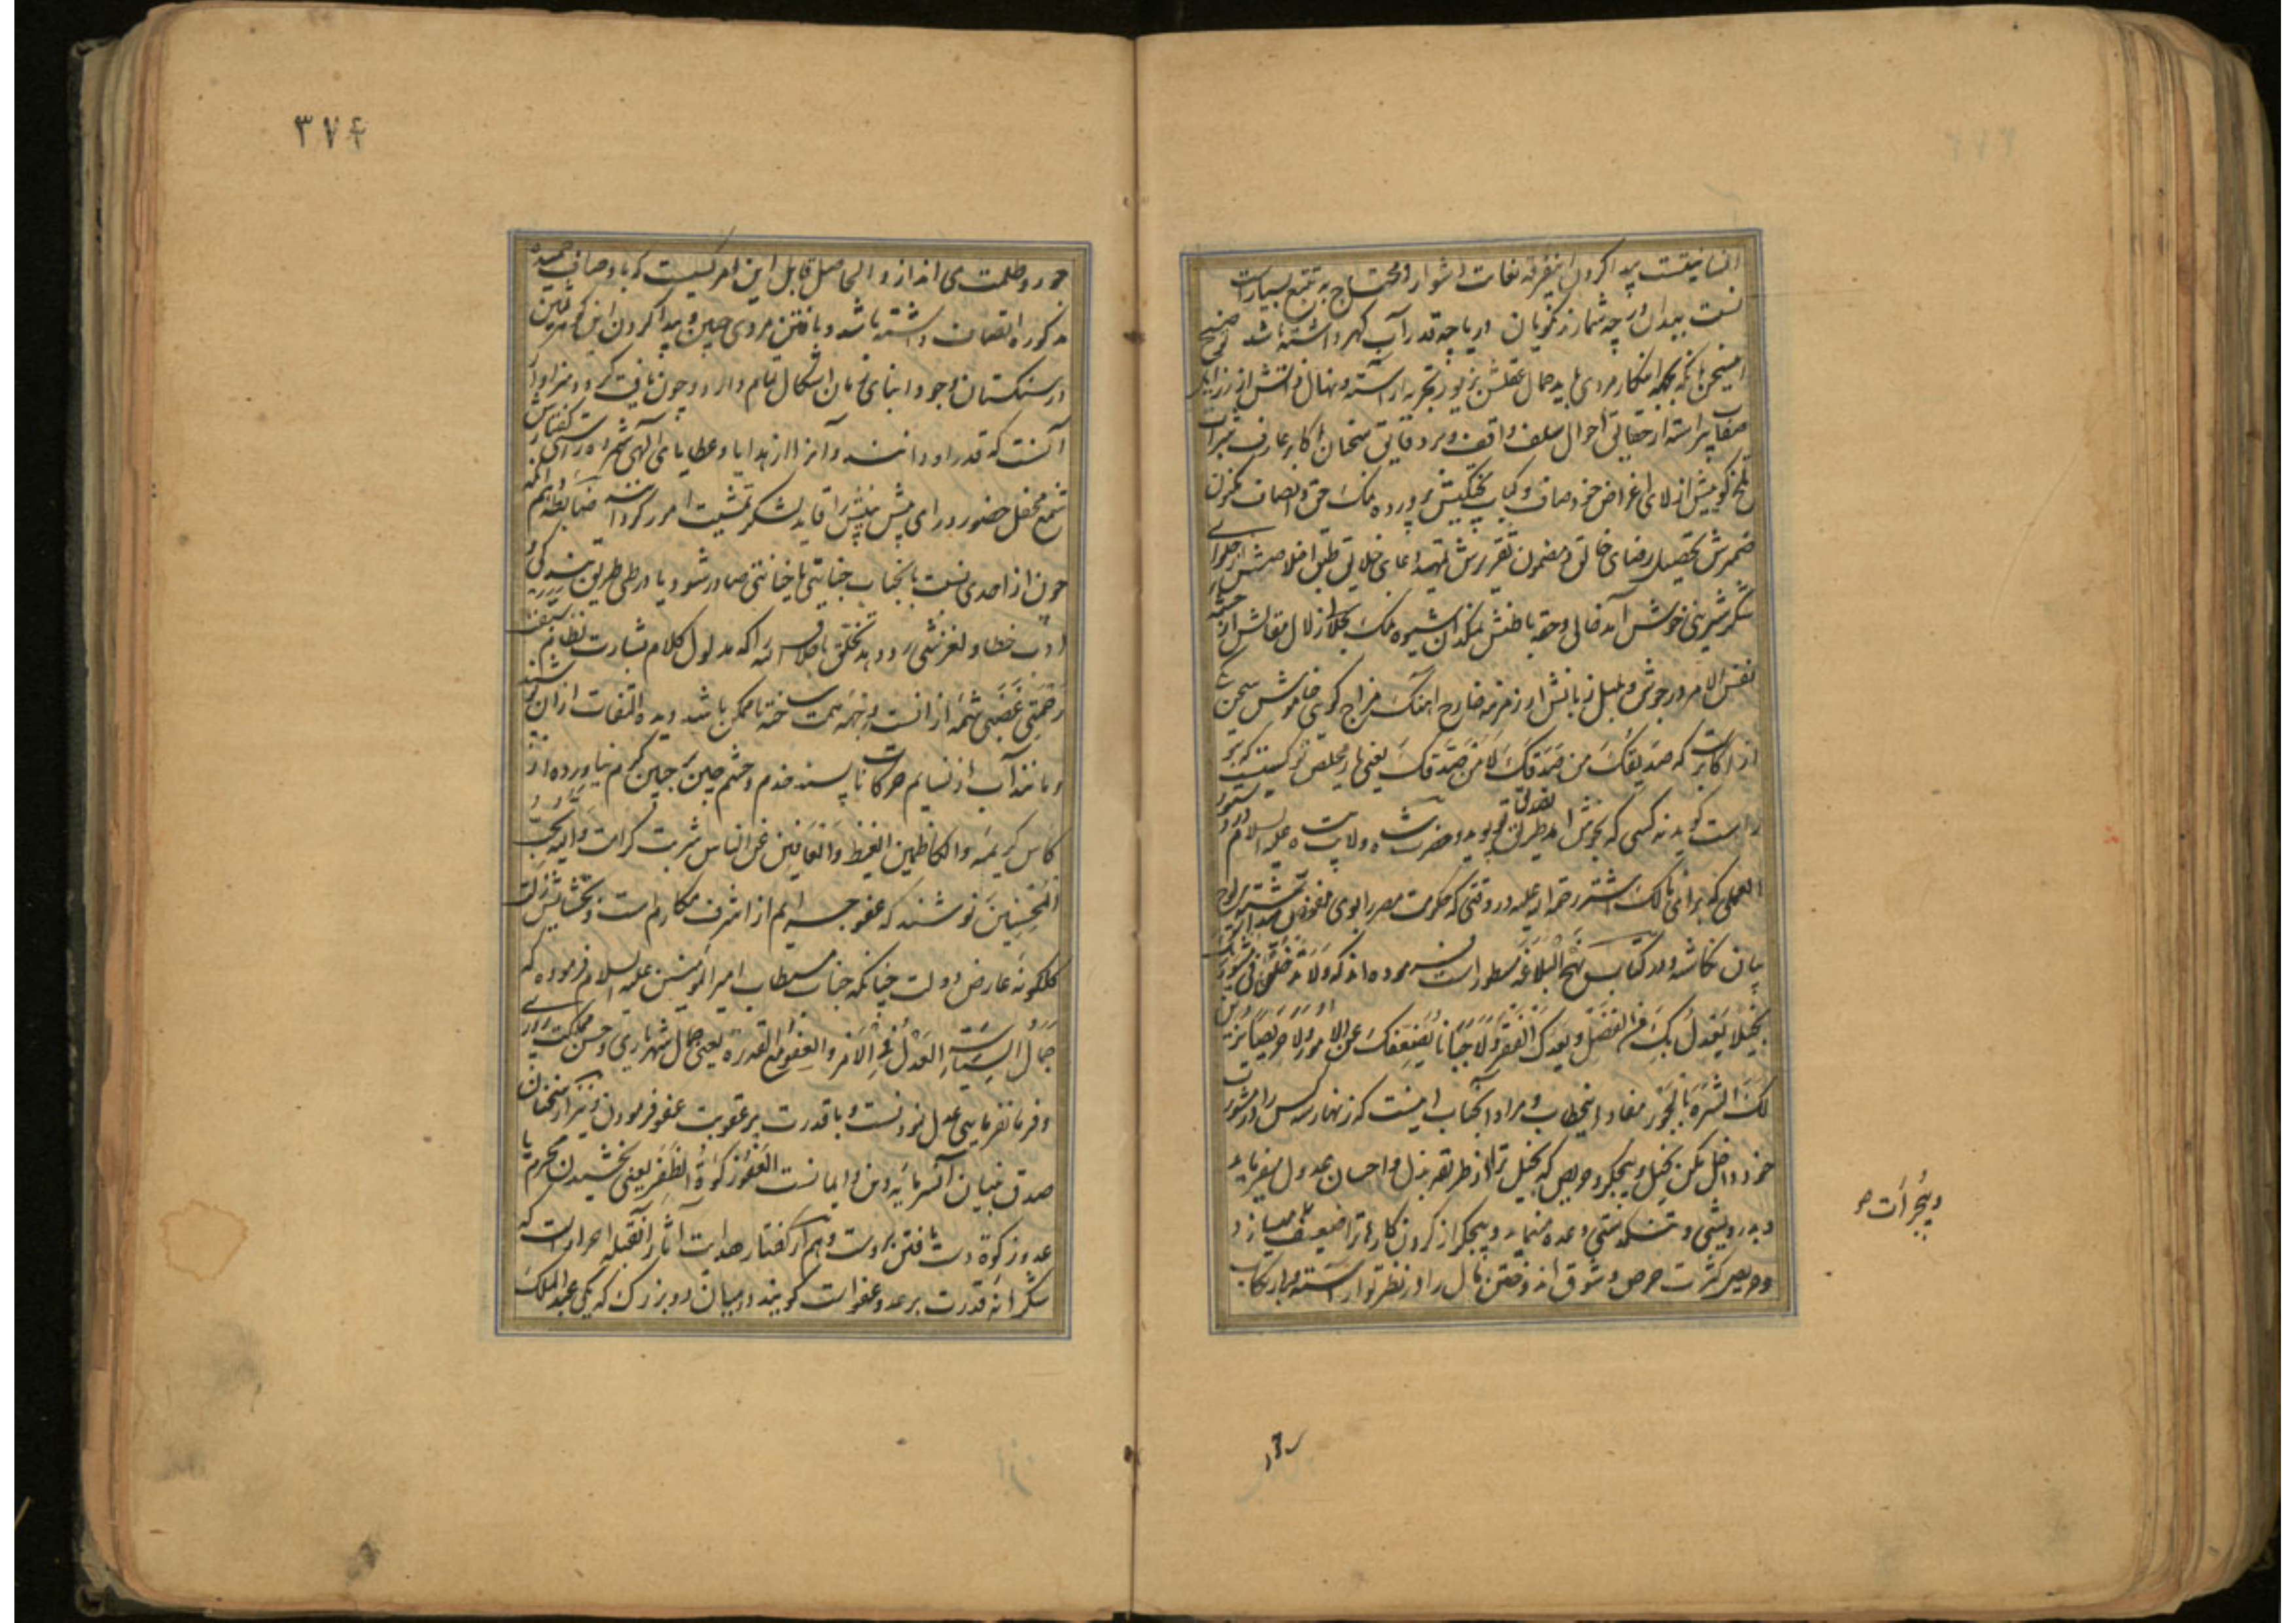 انسانیتست پیدا کردن اینفرقه بغایت دشوار و محتاج به تتبع بسیار است
نیست بیدان در چه شمار ز نکویان او یا چه قدر آب گهر داشته باشد
امتیحن بآنکه محکمه اینکار مردی باید جمال عقلش بزیور تجربه آراسته و نهال دانشش از
صفا پیراسته از حقایق احوال سلف واقف و بر دقایق سخنان اکابر عارف
تلخ گوییش از لای اغراض خود صاف و کباب پختگیش پرورده نمک حق و انصاف مکنون
ضمیرش تحصیل رضای خالق و مضمون تقریرش تمهید دعای خلایق طبق اخلاصش از حلوای
شکر شیرینی خوش آمد خالی و حقه باطنش نمکدان شیوه نمک بحلالی زلال مقالش از چشمه
نفس الامر در جوش و بلبل زبانش از زمزمه خارج آهنگ مزاج گویی خاموش سخن
از اکابر است که صدیقک من صدقک لا من صدقک یعنی یار مخلص تو کسیست که بتو
راست گوید نه کسی که بخوش آمد طریق پوید و حضرت شاه ولایت پناه علیه السلام در دستور
العملی که برای مالک اشتر رحمه الله علیه در وقتی که حکومت مصر را بوی تفویض
بیان نگاشته و در کتاب نهج البلاغه مسطور است فرموده اند که ولا تدخلن فی مشورتک
بخیلا یعدل بک عن الفضل و یعدک الفقر ولا جبانا یضعفک عن الامور ولا حریصا یزین
لک الشره بالجور مفاد اینخطاب و مراد آنجناب اینست که زنهار سه کس را در مشورت
خود داخل مکن بخیل و بیجگر و حریص که بخیل ترا از طریقه بذل و احسان عدول میفرماید
و بدرویشی و تنگدستی وعده مینماید و بیجگر از کردن کارها ترا ضعیف میسازد
و حریص کثرت حرص و شوق اندوختن مال را در نظر تو آراسته
و بیجرأت
۳۷۴
جور و ظلمت می اندازد الحاصل قابل این امر کسیست که باوصاف حمیده
مذکوره اتصاف داشته باشد و یافتن مردی چنین و پیدا کردن این گوهر ثمین
در سنگستان وجود ابنای زمان اشکال تمام دارد و چون یافت گردد سزاوار
آنست که قدر او دانند و آنرا از هدایا و عطایای الهی شمرده
شمع محفل حضور و رای پیش بینش را قاید لشکر تمشیت امور گردانند ضابطه
چون از احدی نسبت بآنجناب جنایتی یا خیانتی صادر شود و یا در طی طریق بندگی و
ادب خطا و لغزشی رو دهد تخلق باخلاق الله که مدلول کلام بشارت نظام سبقت
رحمتی غضبی شمه از آنست وجهه همت ساخته تا ممکن باشد دیده التفات از آن پوشند
و مانند آب از نسایم حرکات ناپسند خدم و حشم چین بر جبین کرم نیاورده از
کاس کریمه والکاظمین الغیظ والعافین عن الناس شربت کرامت والله یحب
المحسنین نوشند که عفو جرایم از اشرف مکارم است و بخشایش زلت
گلگونه عارض دولت چنانکه جناب مستطاب امیر المؤمنین علیه السلام فرموده که
جمال السیاسة العدل فی الامر والعفو مع القدرة یعنی جمال شهریاری و حسن مملکت داری
و فرمانفرمایی عدل نمودنست و با قدرت بر عقوبت عفو فرمودن و نیز از سخنان
صدق بنیان آنسرمایه دین و ایمانست العفو زکوة الظفر یعنی بخشیدن مجرم
عدو زکوة دست یافتن بروست و هم از گفتار هدایت آثار آنقبله احرار است که
شکرانه قدرت بر عدو عفو است گویند در میان دو بزرگ که یکی عبد الملک